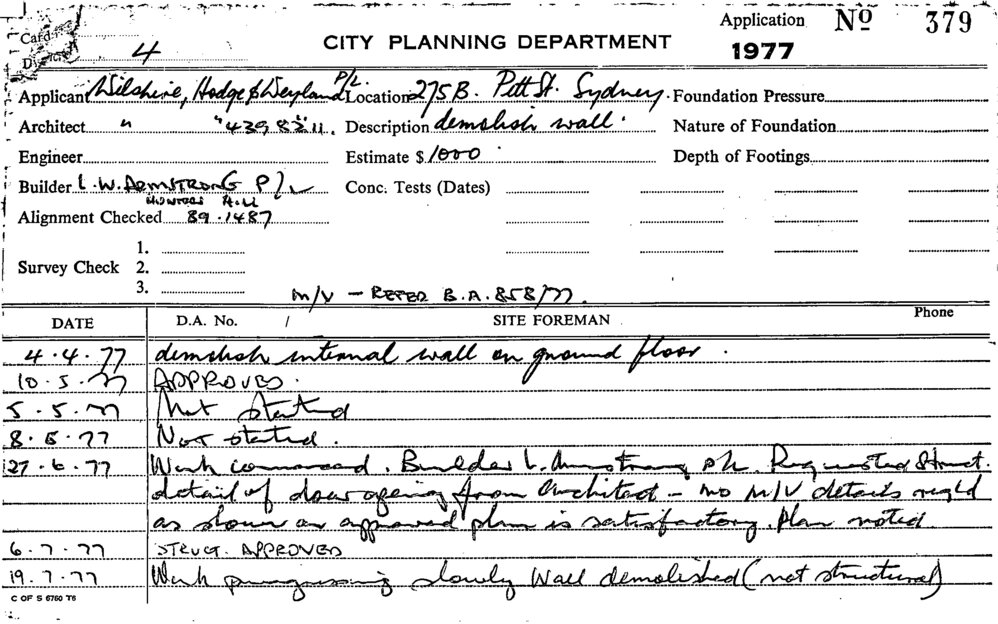 Card
District 4
CITY PLANNING DEPARTMENT
Application No 379
1977
Applicant Wilshire, Hodge & Weyland P/L.
Location 275B. Pitt St. Sydney.
Foundation Pressure
Architect " "439 8311.
Description demolish wall.
Nature of Foundation
Engineer
Estimate $ 1000
Depth of Footings
Builder L.W. ARMSTRONG P/L
Conc. Tests (Dates)
HUNTERS HILL
Alignment Checked 89.1487
1.
Survey Check 2.
3.
M/V - REFER B.A. 858/77.
DATE D.A. No. / SITE FOREMAN Phone
4.4.77 demolish internal wall on ground floor.
10.5.77 APPROVED.
5.5.77 Not started
8.6.77 Not started.
27.6.77 Work commenced. Builder L. Armstrong Requested Struct.
detail of door opening from Architect - no M/V details req'd
as shown on approved plan is satisfactory. Plan noted
6.7.77 STRUCT. APPROVED
19.7.77 Work progressing slowly Wall demolished (not structural)
C OF S 6760 T6